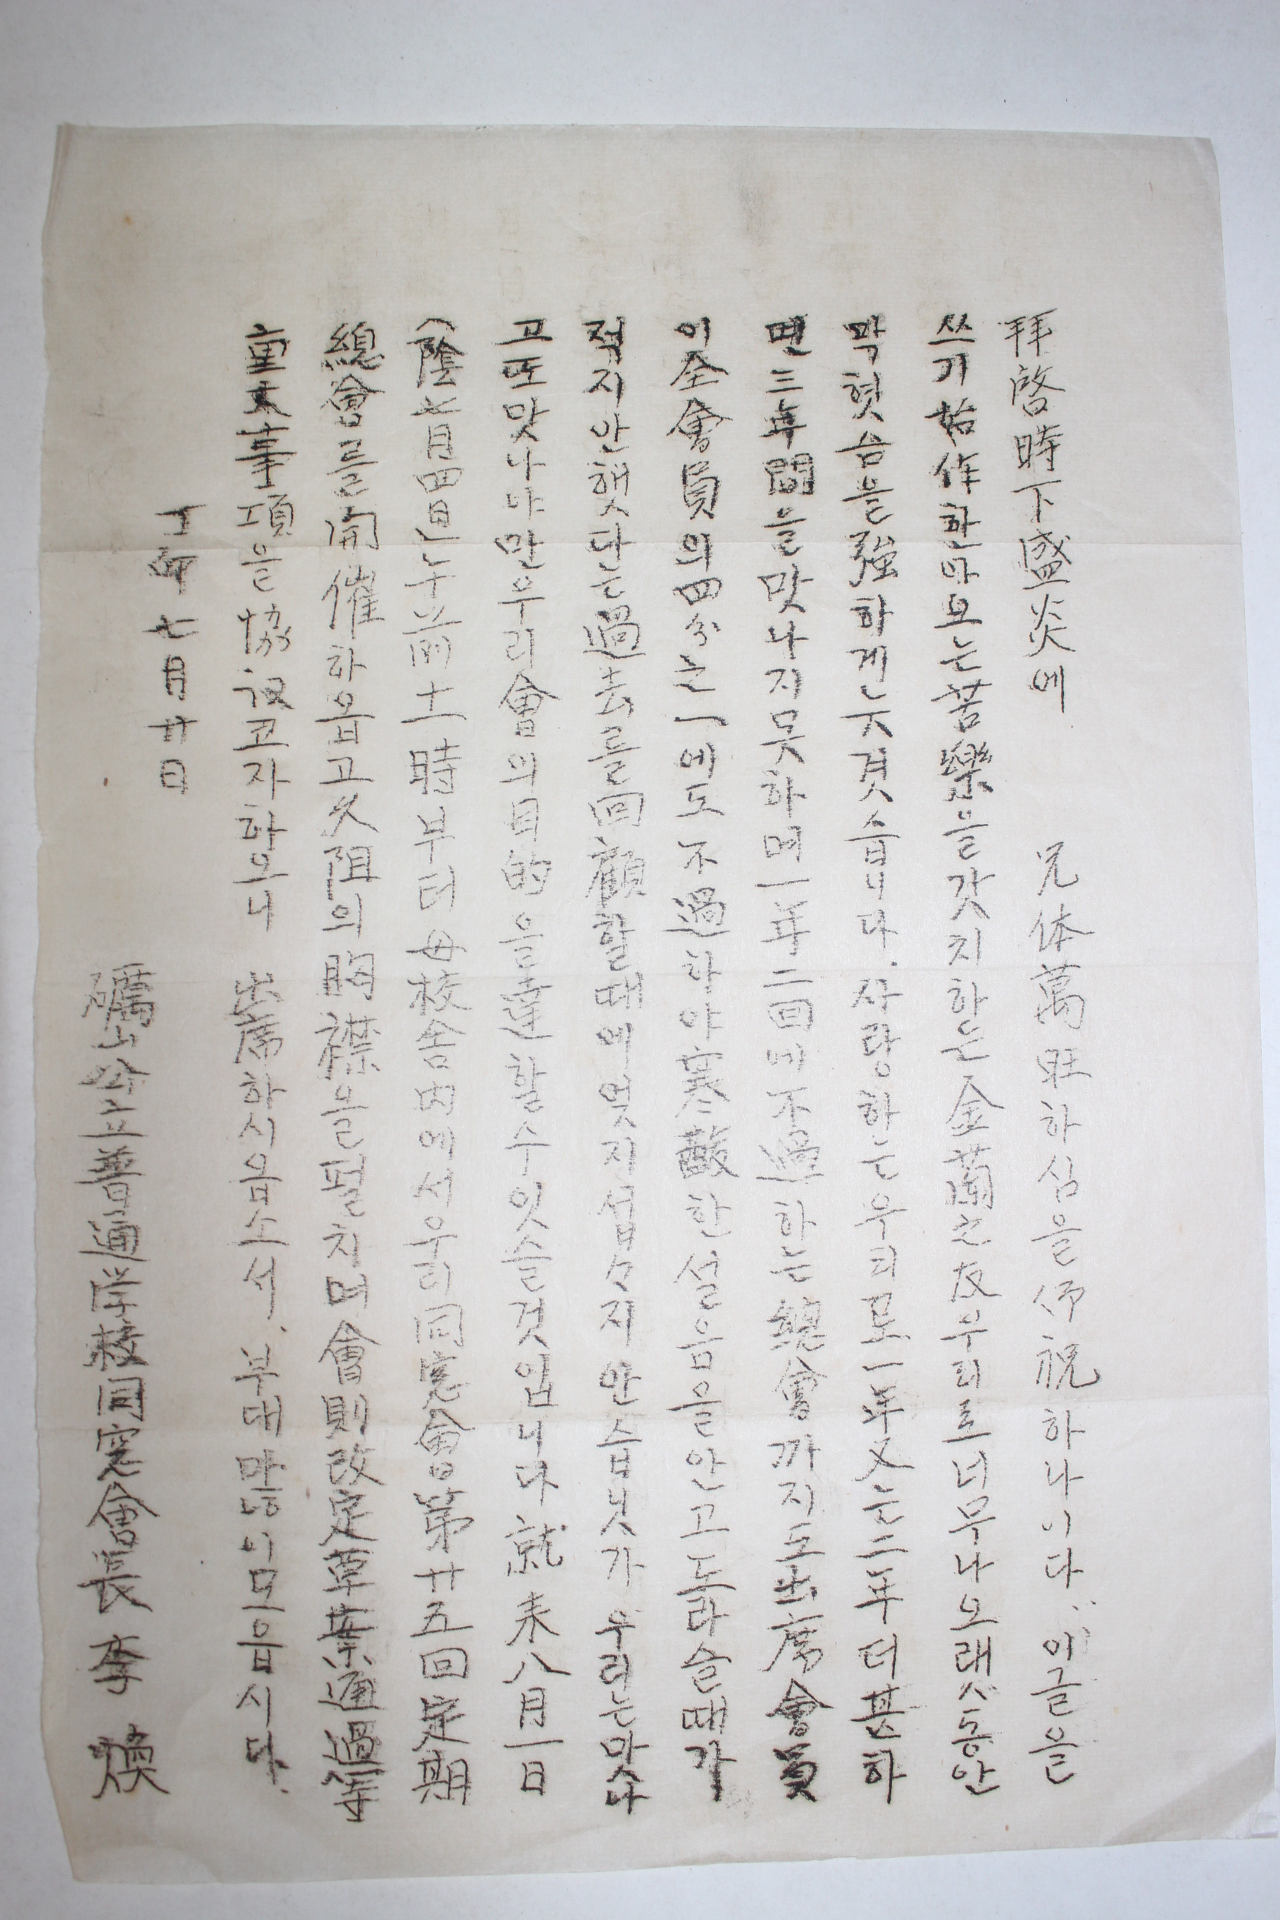 拜啓時下盛炎에 兄体萬旺하심을仰祝하나이다. 이글을
쓰기始作한마으는苦樂을갓치하은金蘭之友우리로너무나오래ㅅ동안
막혓슴을强하게늣겻슴니다. 사랑하는우리로一年又는二年더甚하
면三年間을맛나지못하며一年二回에不過하는總會까지도出席會員
이全會員의四分之一에도不過하야寒酸한설음을안고도라슬때가
적지안햇다는過去를回顧할때에엇지섭々지안슴닛가 우리는맛나
고또맛나야만우리會의目的을達할수잇슬것임니다 就来八月一日
(陰七月四日)午前十一時부터母校舍內에서우리同窓會第廿五回定期
總會를開催하옵고久阻의胸襟을펼치며會則改定草案通過等
重大事項을協议코자하오니 出席하시옵소서. 부대만이모읍시다.
丁卯七月廿日
礪山公立普通学校同窓會長 李 煥